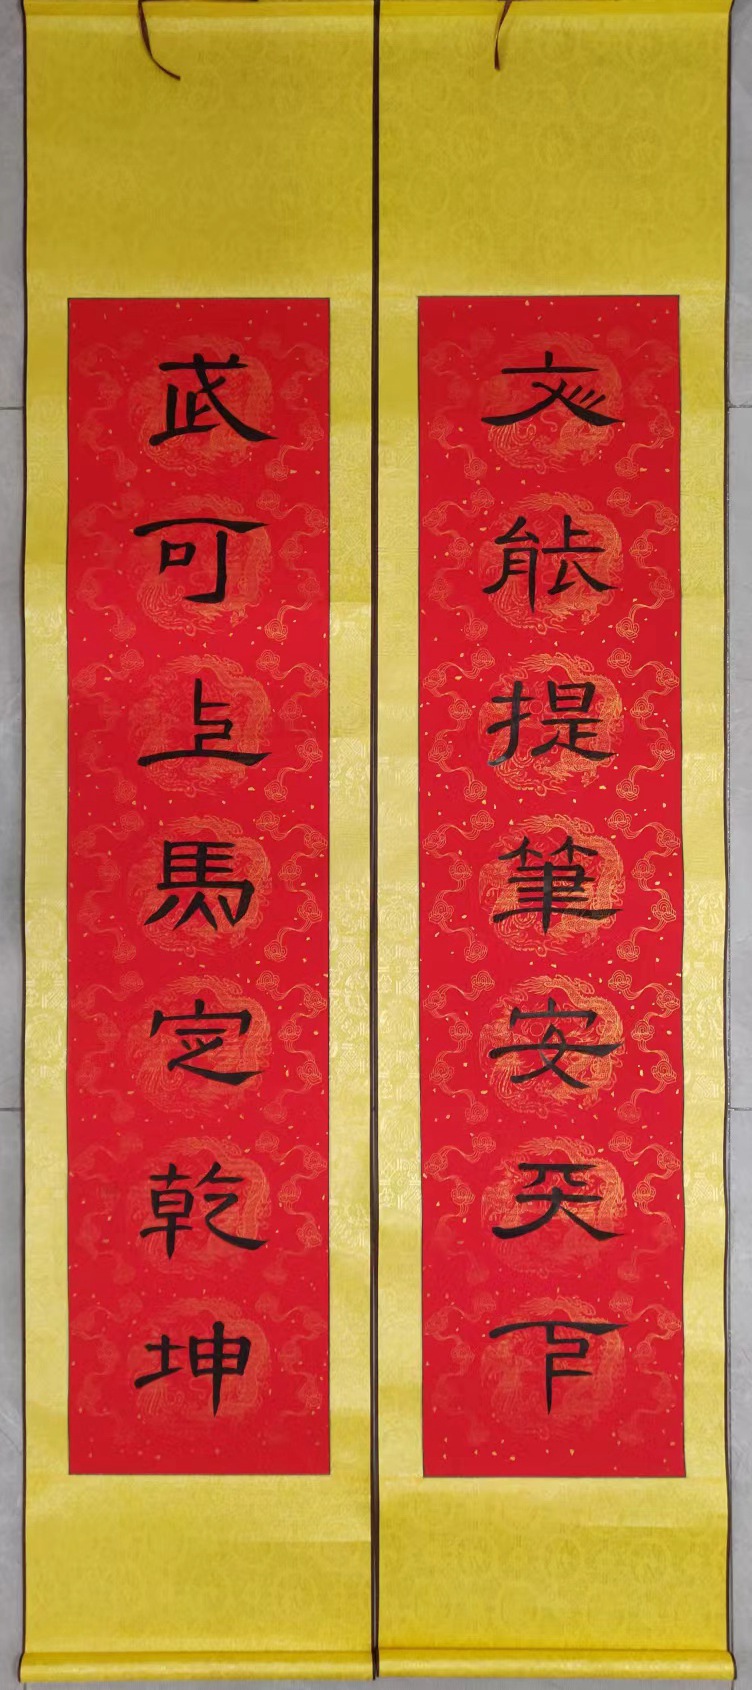 文能提筆安天下
武可上馬定乾坤